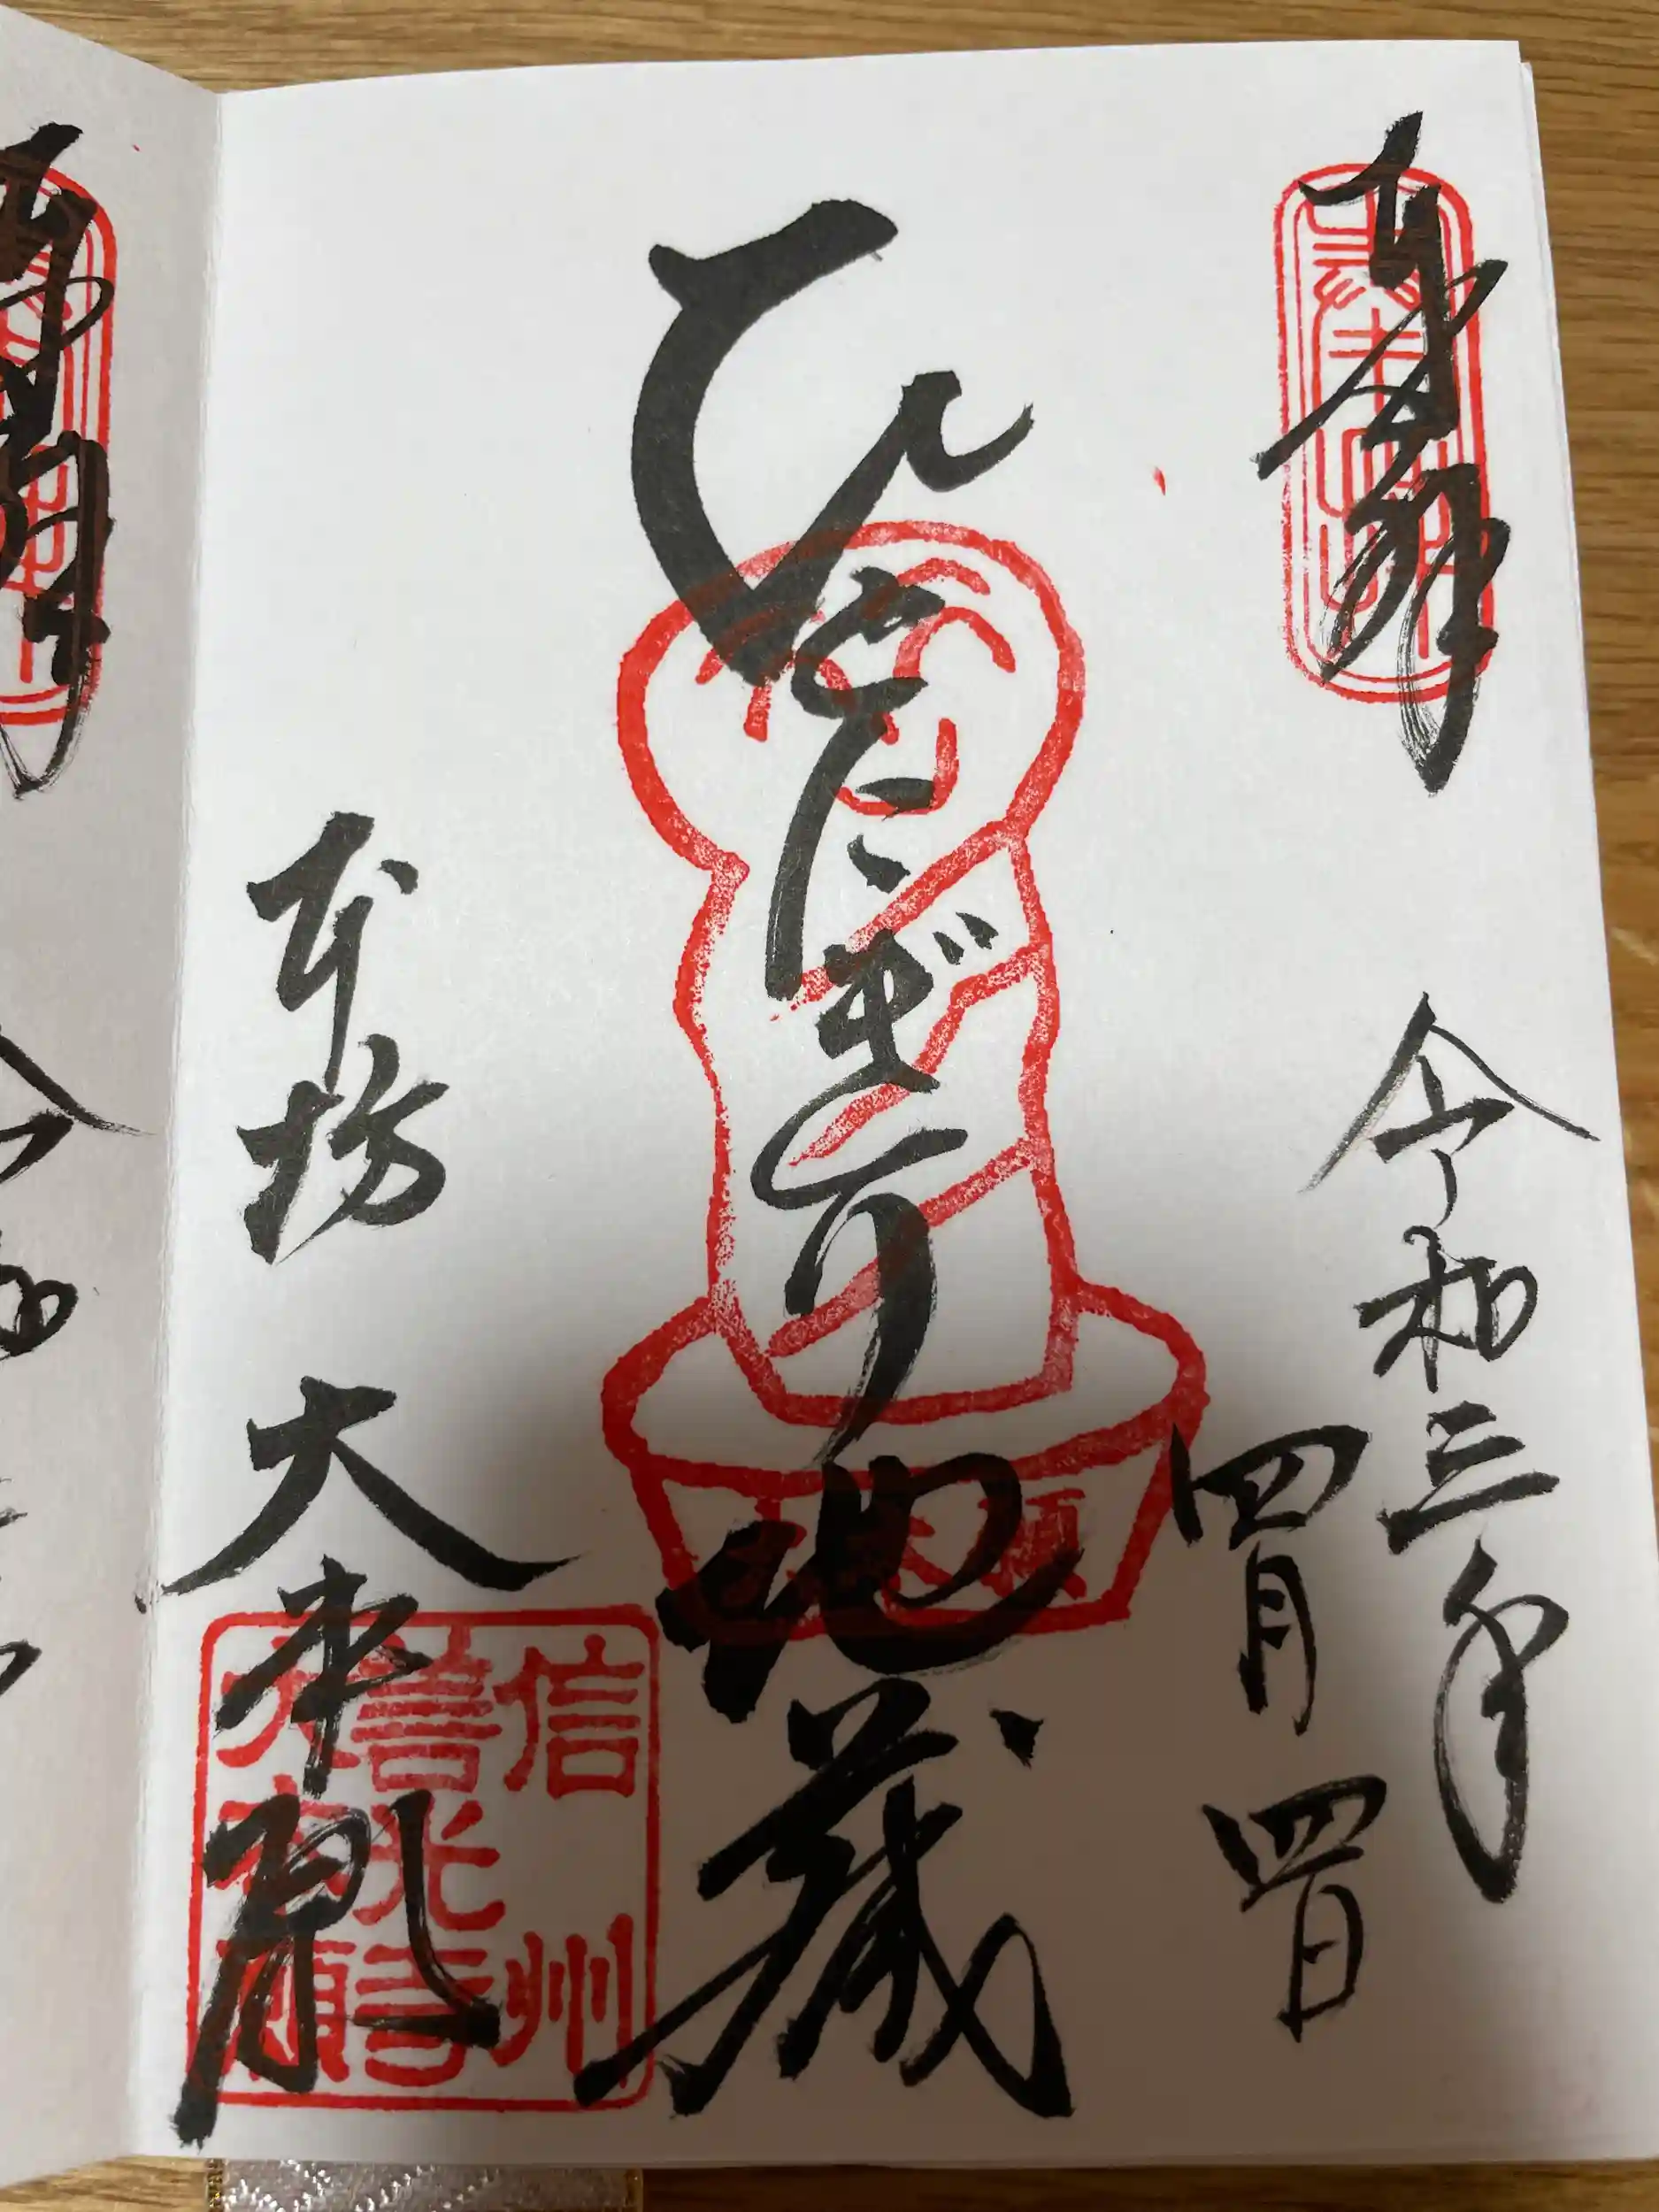 奉拝
令和三年
四月四日
ひとにぎり地蔵
本坊 大本願
信州
善光寺
大本願